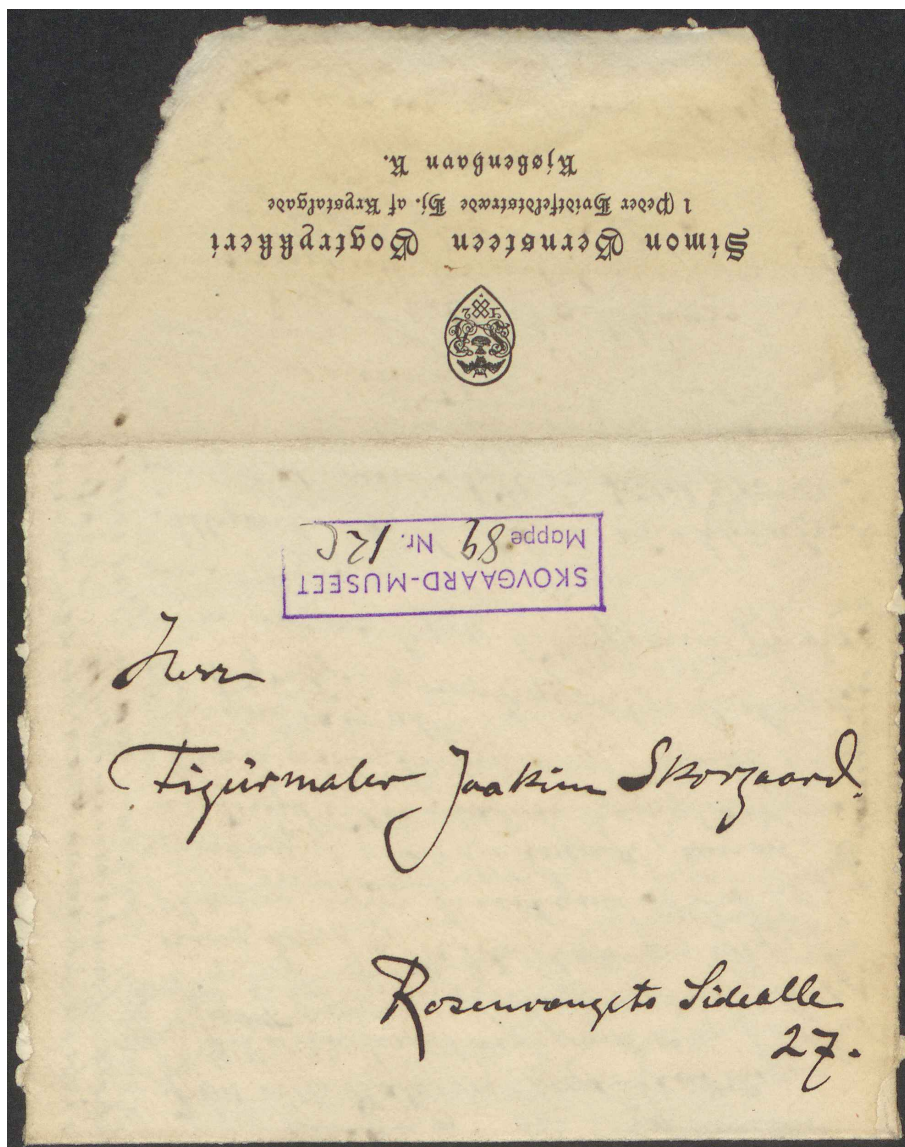 Simon Bernsteen Bogtrykkeri
1 Peder Hvidtfeldtstræde Hj. af Krystalgade
Kjøbenhavn K.
SKOVGAARD-MUSEET
Mappe 89 Nr. 12C
Herr
Figurmaler Joakim Skovgaard.
Rosenvængets Sidealle
27.